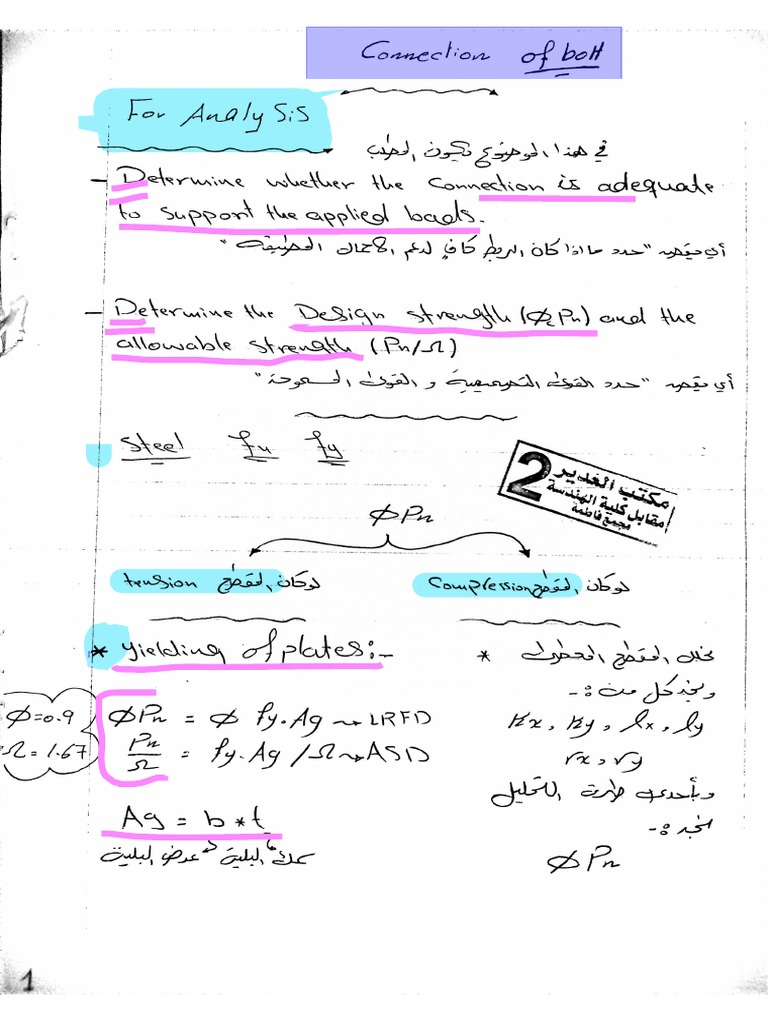 Connection of bolt
For Analysis
في هذا الموضوع تكون الطلب
- Determine whether the Connection is adequate
to support the applied loads.
أي يقصد "حدد ماذا كان الربط كافي لدعم الاحمال المطبقة"
- Determine the Design strength (ΦPn) and the
allowable strength (Pn/Ω)
أي يقصد "حدد القوى التصميمية و القوى المسموحة"
steel fu fy
2
مكتب الغدير
مقابل كلية الهندسة
مجمع فاطمة
ΦPn
لو كان المقطع tension
لو كان المقطع Compression
* Yielding of plates:-
Φ=0.9
Ω=1.67
ΦPn = Φ fy.Ag → LRFD
Pn/Ω = fy.Ag/Ω → ASD
Ag = b*t
سمك البليت عرض البليت
* نحلل المقطع
ونجد كل من :-
Kx, Ky, lx, ly
rx, ry
طرق التحليل
نجد :-
ΦPn
1